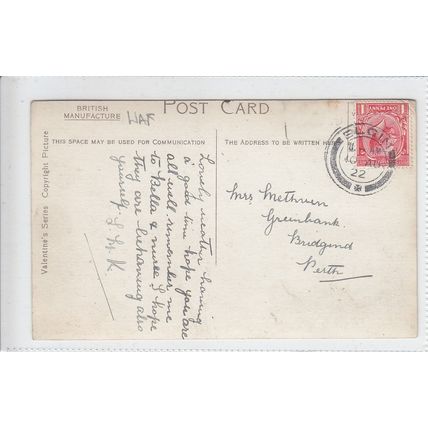 BRITISH
MANUFACTURE
POST CARD
THIS SPACE MAY BE USED FOR COMMUNICATION
THE ADDRESS TO BE WRITTEN HERE
Valentine's Series Copyright Picture
Lovely weather having
a good time hope you are
all well remember me
to Bella & nurse I hope
they are behaving also
yourself
Mrs Methven
Greenbank.
Bridgend
Perth
ELGIN
22
ONE PENNY